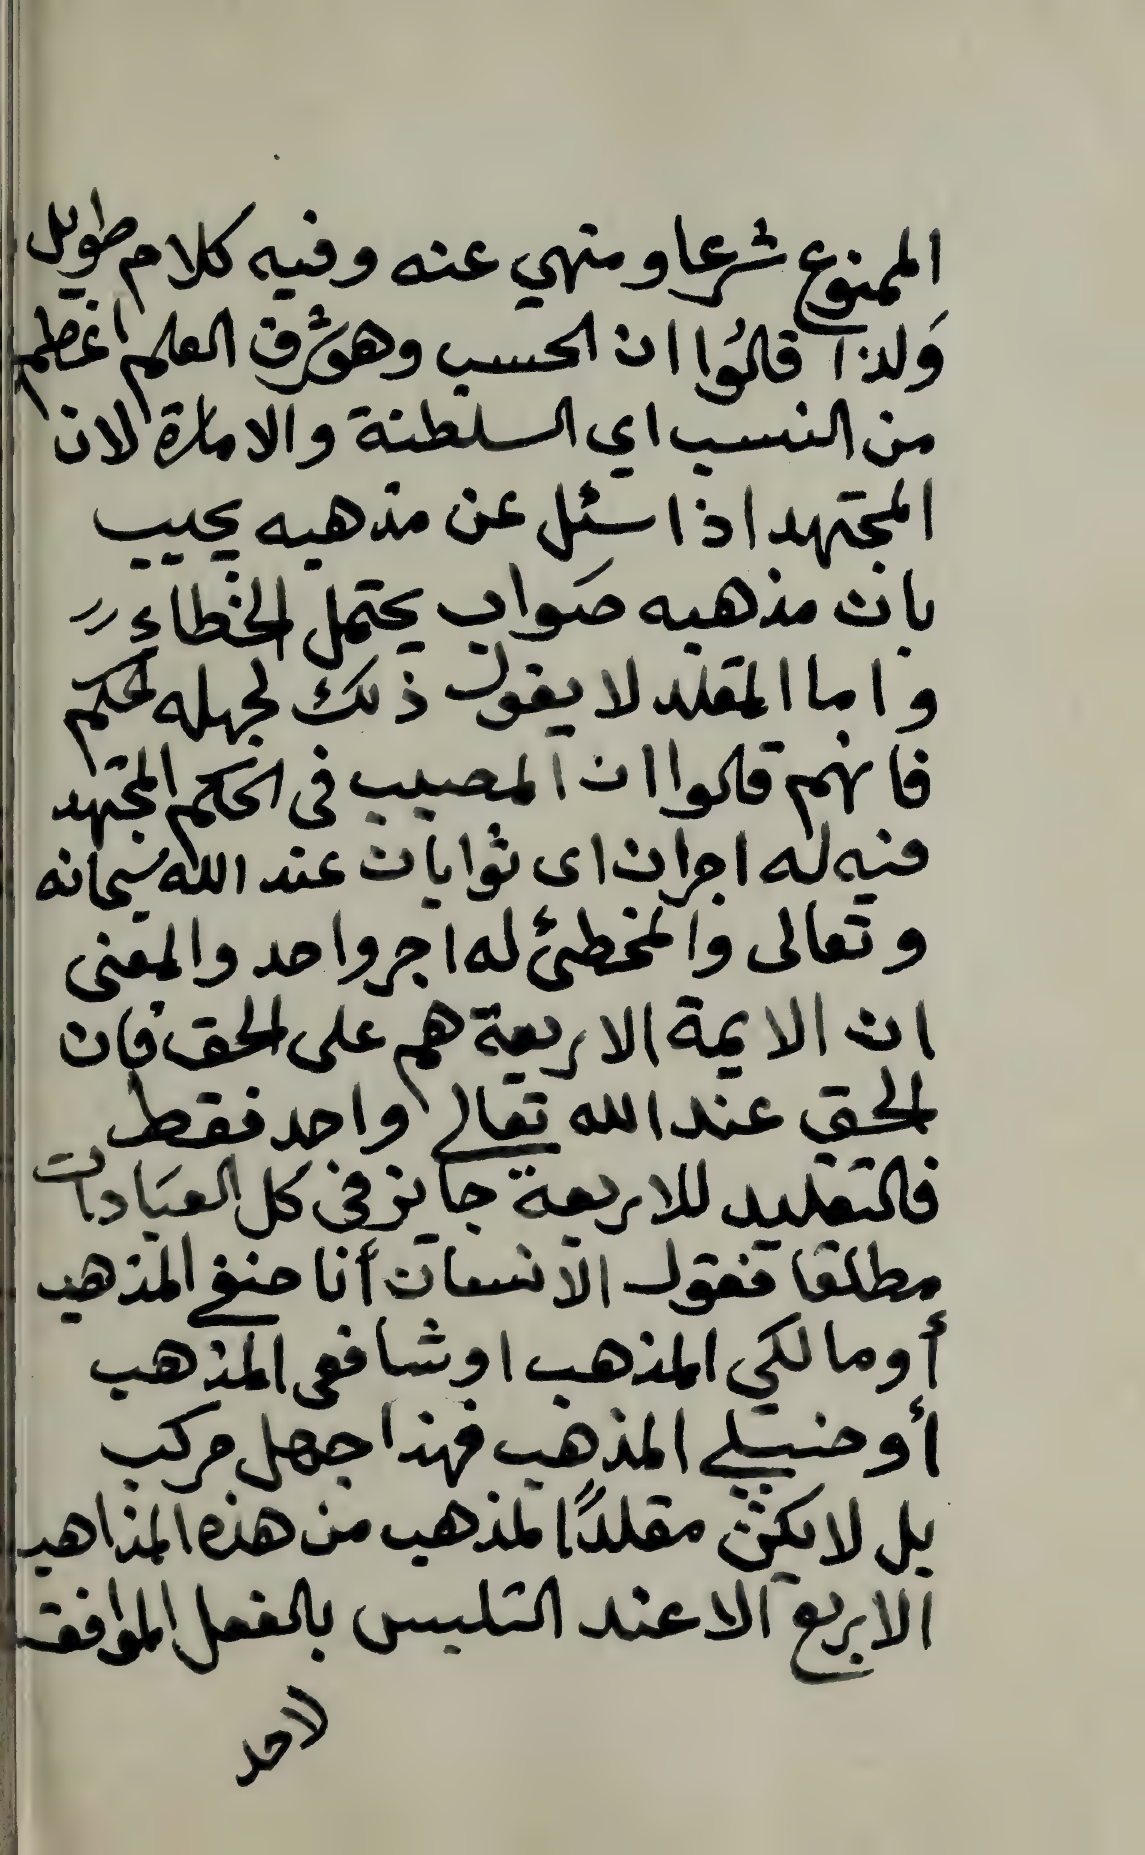 الممنوع شرعا ومنهي عنه وفيه كلام طويل
ولذا قالوا ان الحسب وهو شرف العلم اعظم
من النسب اي السلطنة والامارة لان
المجتهد اذا سئل عن مذهبه يجيب
بان مذهبه صواب يحتمل الخطاء
واما المقلد لا يقول ذلك لجهله لحكم
فانهم قالوا ان المصيب في الحكم المجتهد
فيه له اجران اى ثوابان عند الله سبحانه
وتعالى والمخطئ له اجر واحد والمعنى
ان الايمة الاربعة هم على الحق فان
الحق عند الله تعالى واحد فقط
فالتقليد للاربعة جايز في كل العبادات
مطلقا فقول الانسان أنا حنفي المذهب
أو مالكي المذهب او شافعى المذهب
أو حنبلي المذهب فهذا جهل مركب
بل لا يكن مقلدًا لمذهب من هذه المذاهب
الاربع الا عند التلبس بالفعل الموافق
لاحد